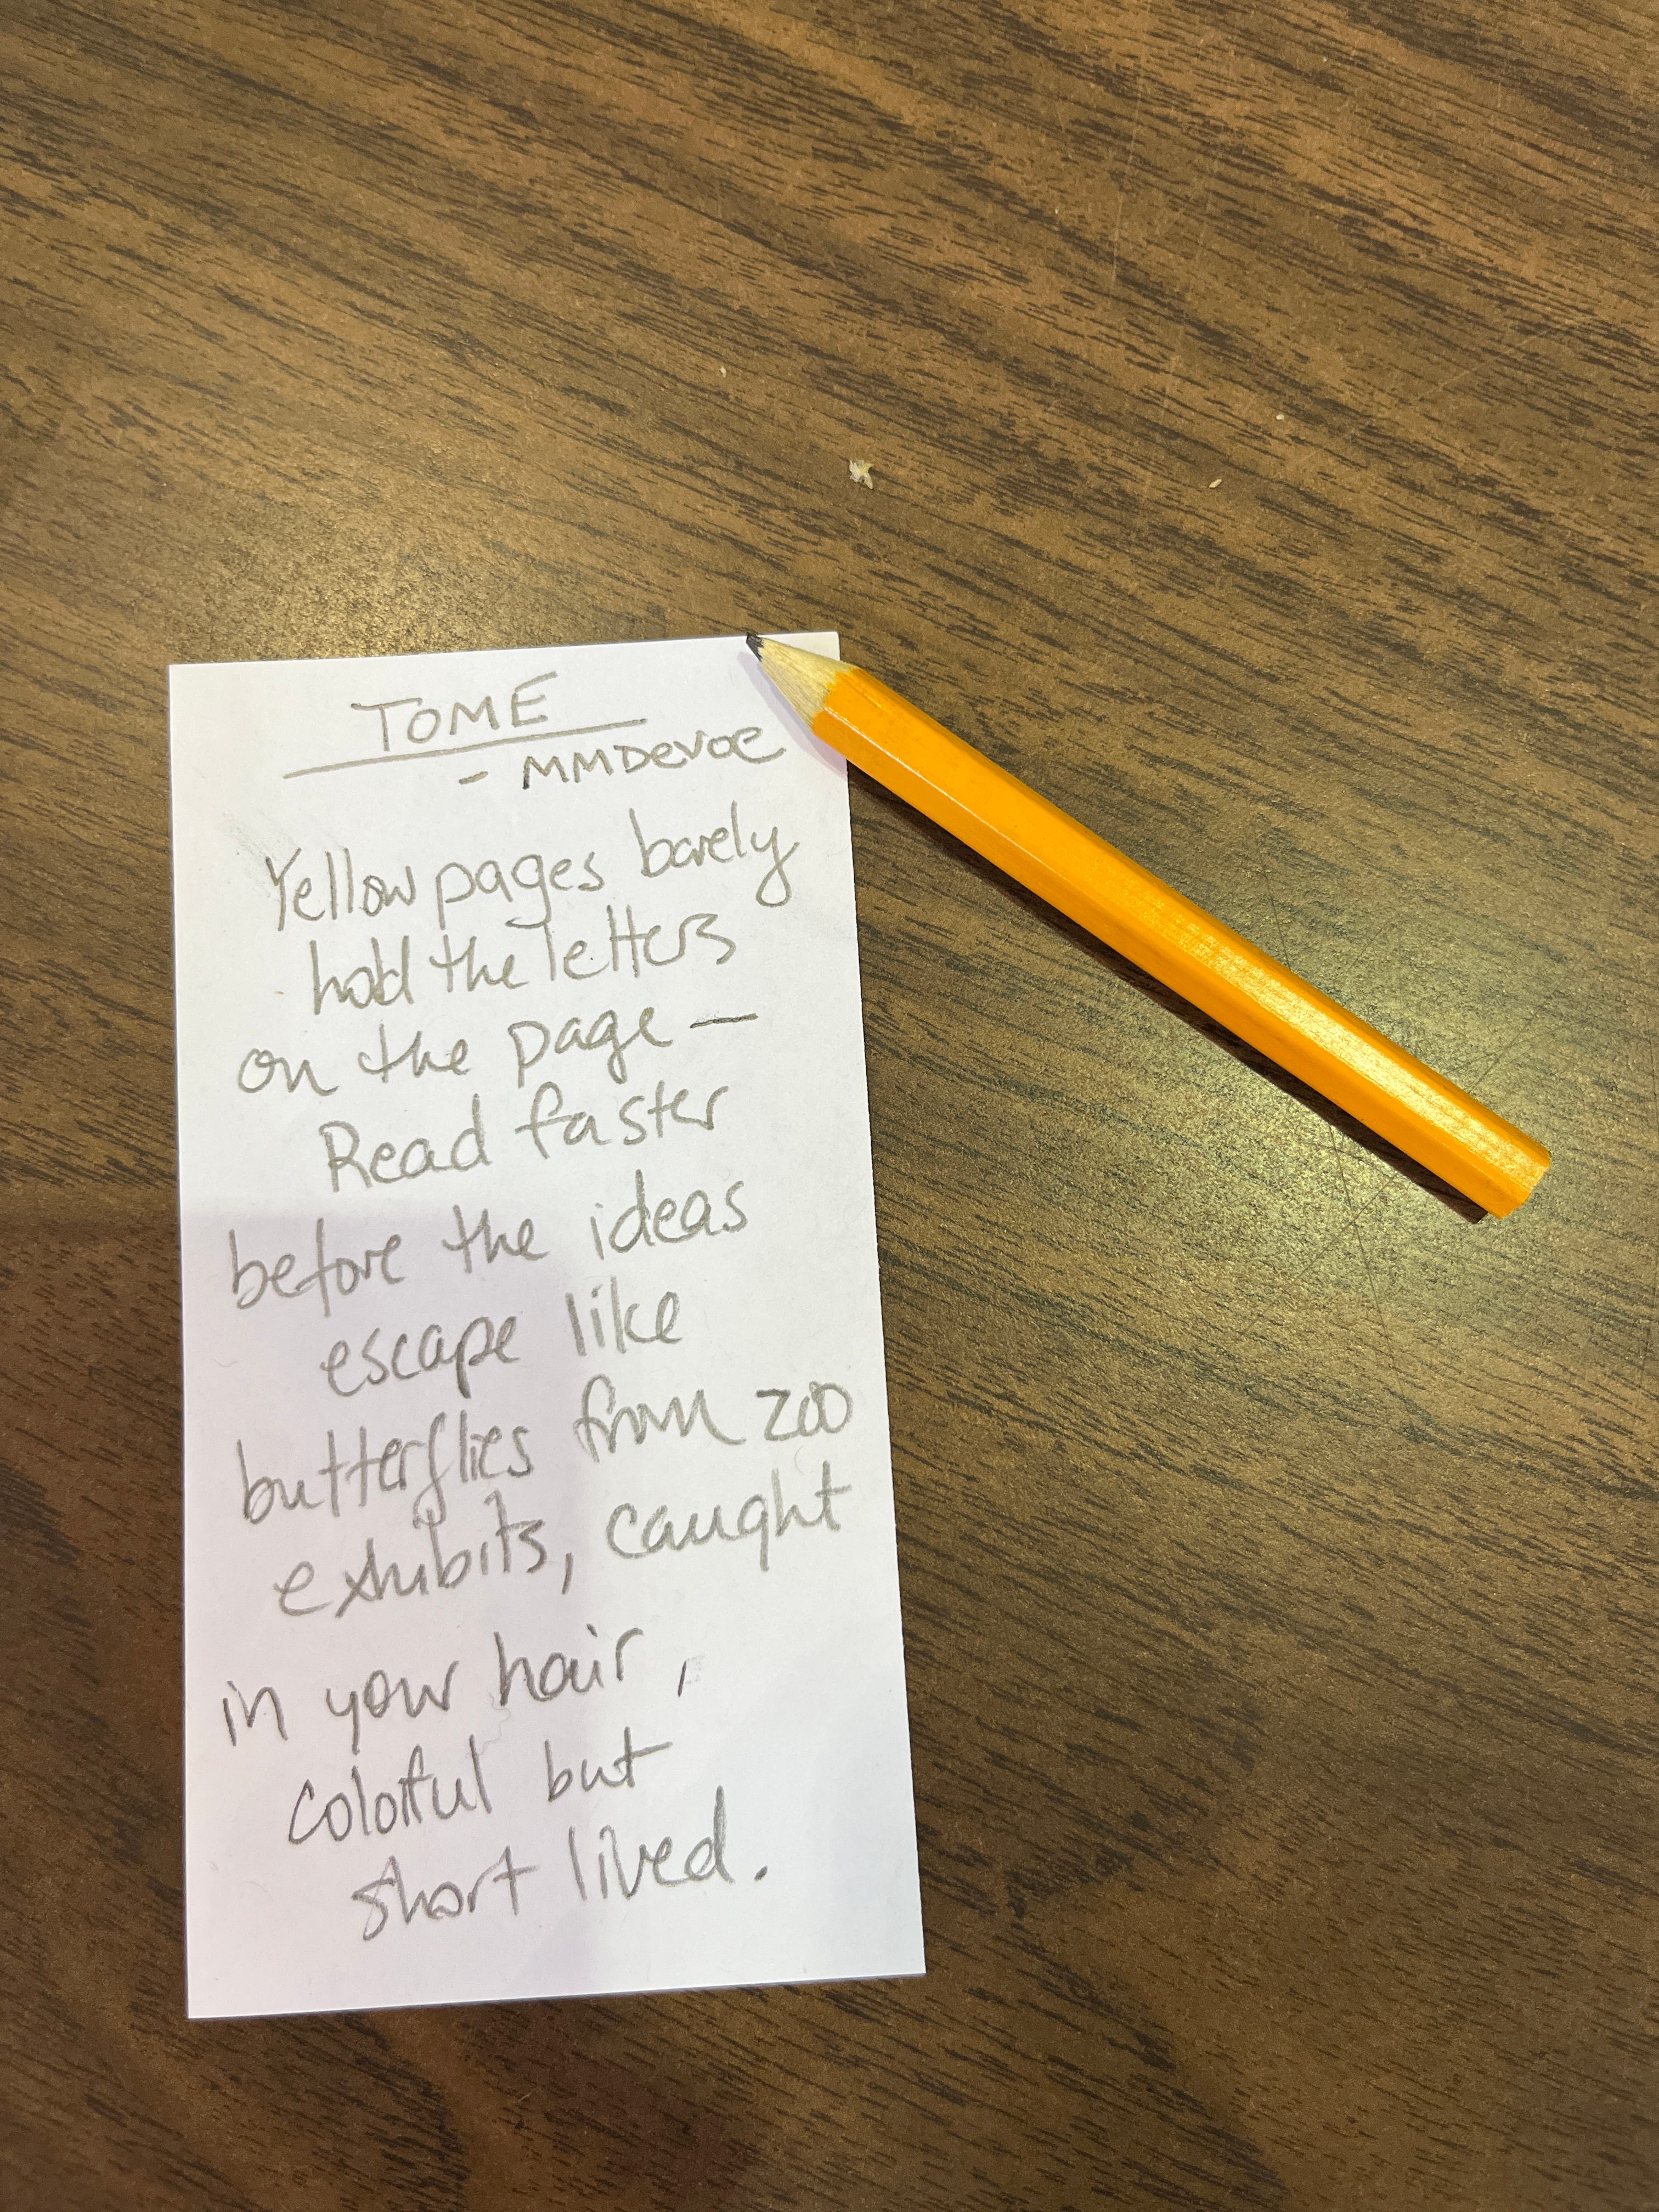 TOME
- MMDeVoe
Yellow pages barely
hold the letters
on the page —
Read faster
before the ideas
escape like
butterflies from zoo
exhibits, caught
in your hair,
colorful but
short lived.